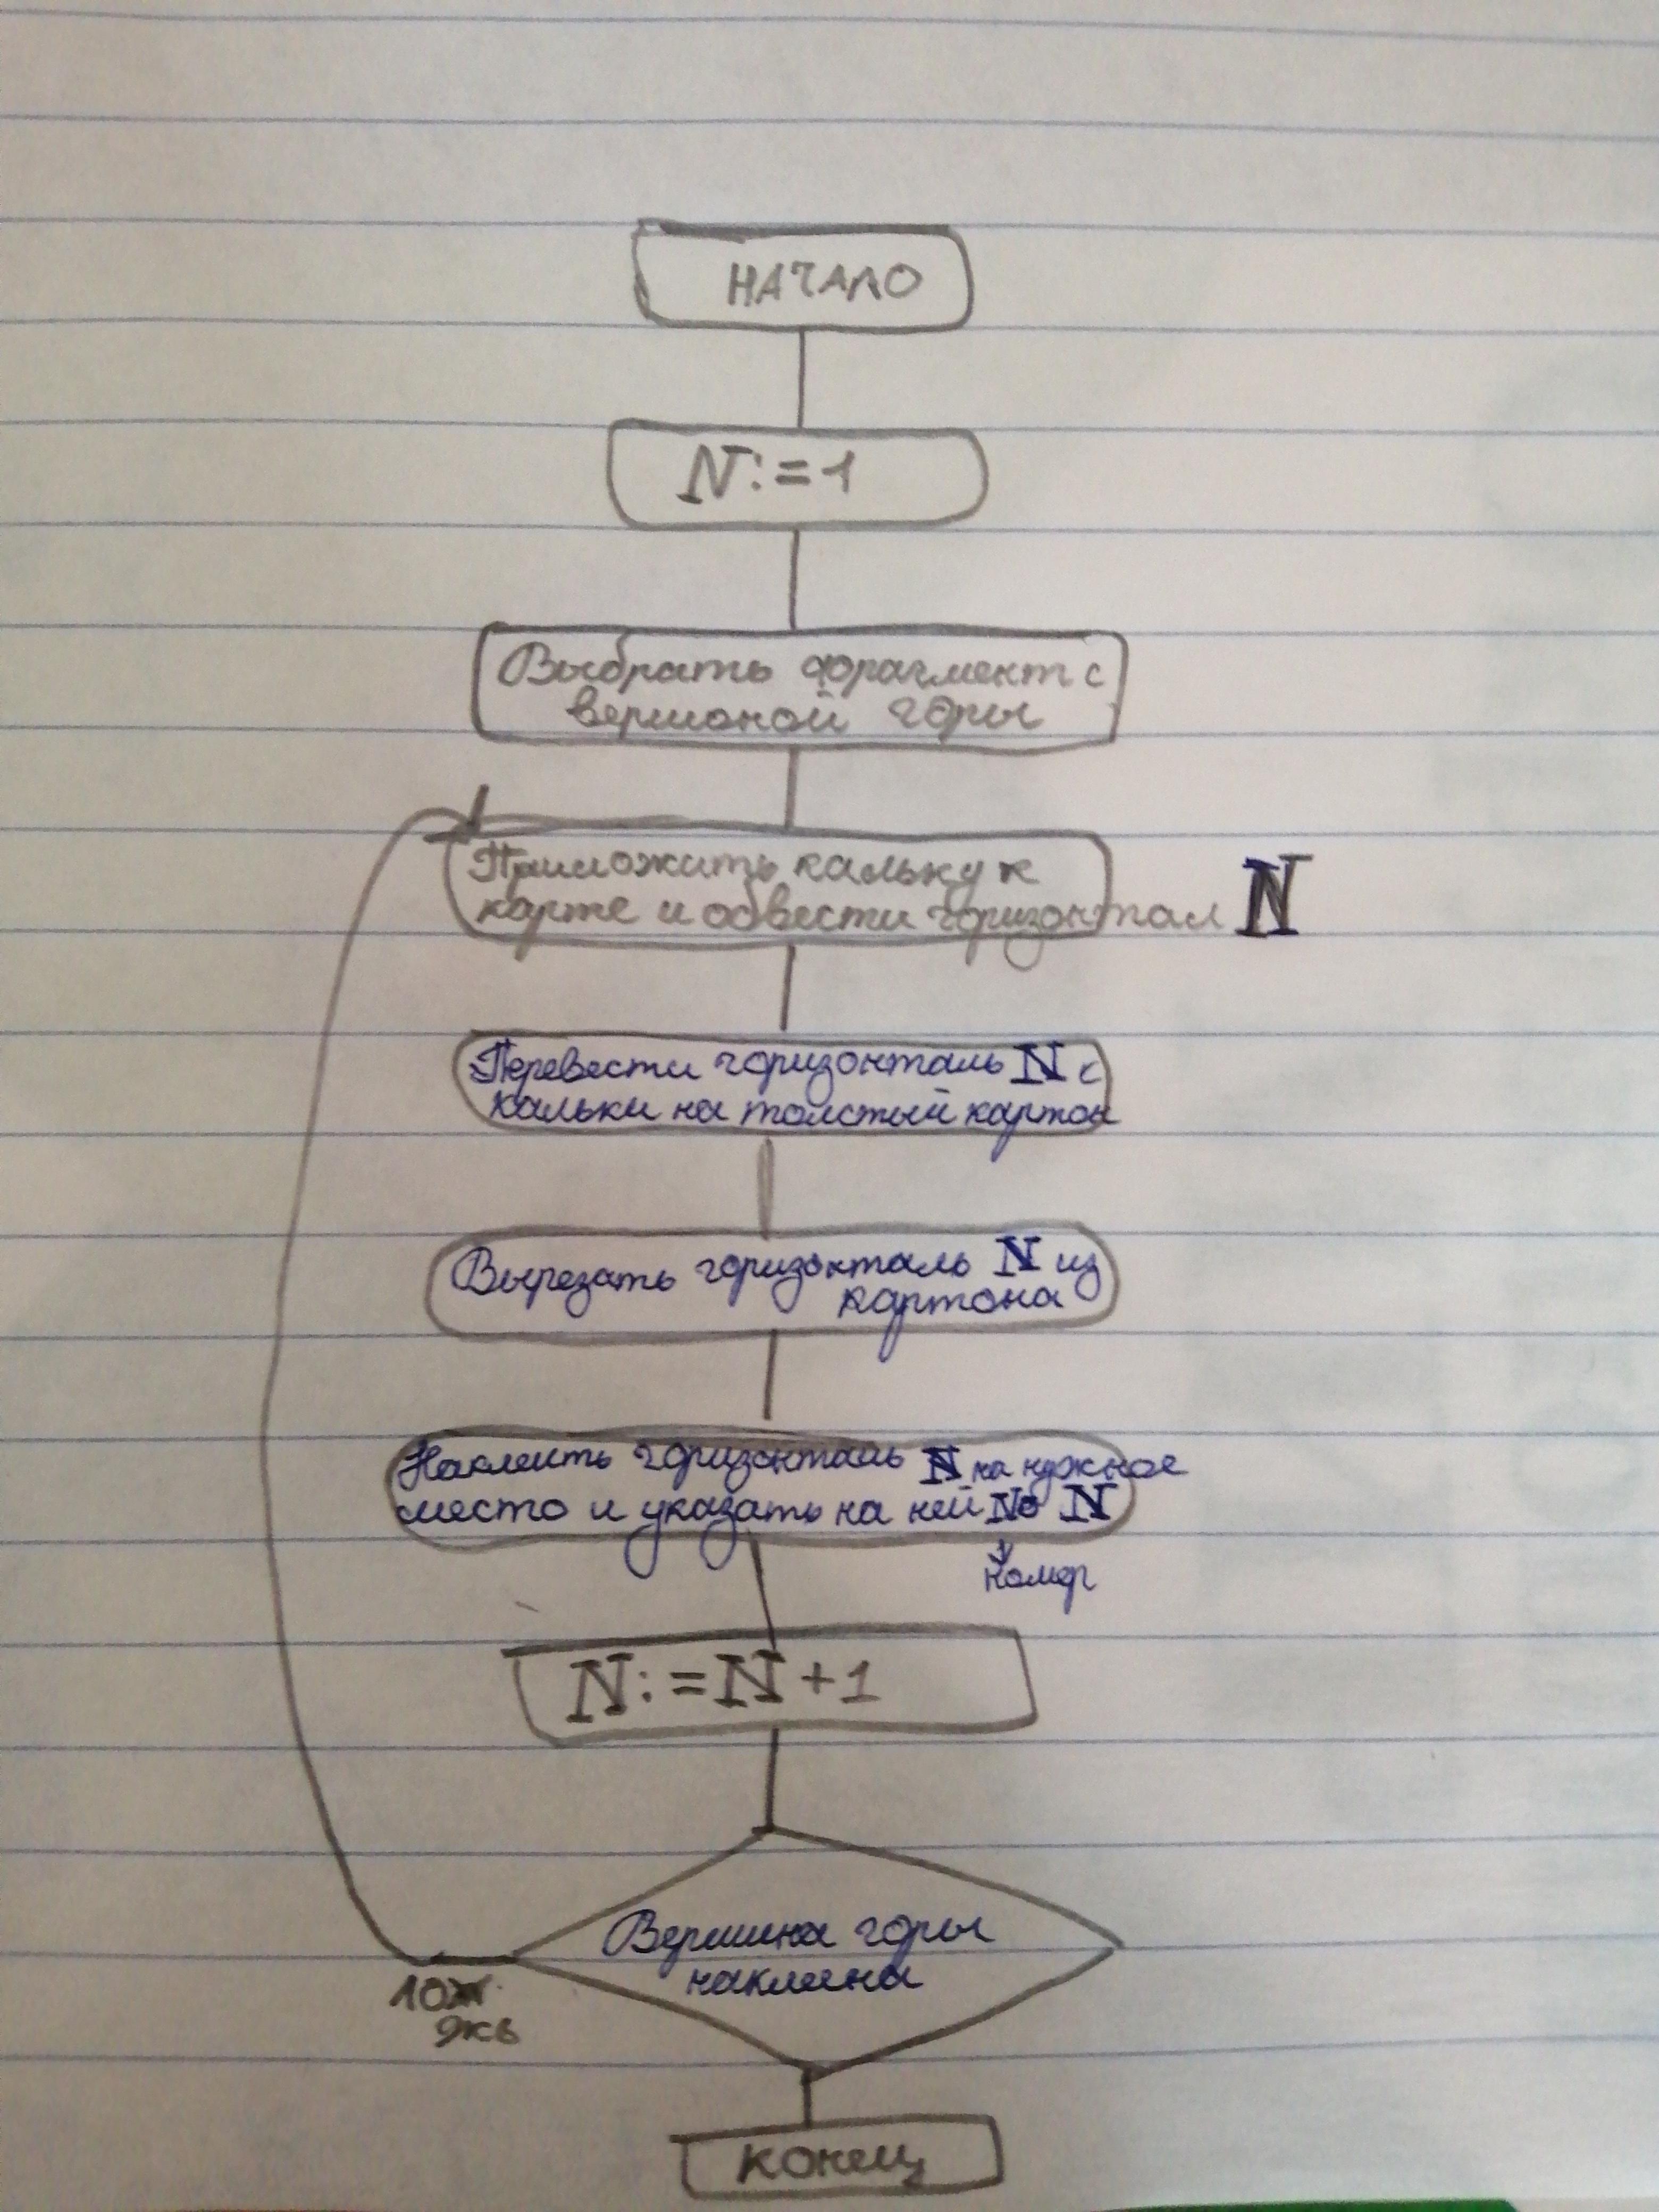 НАЧАЛО
N:=1
Выбрать фрагмент с
вершиной горы
Приложить кальку к
карте и обвести горизонтал N
Перевести горизонталь N с
кальки на толстый картон
Вырезать горизонталь N из
картона
Наклеить горизонталь N на нужное
место и указать на ней № N
номер
N:=N+1
Вершина горы
наклеена
конец